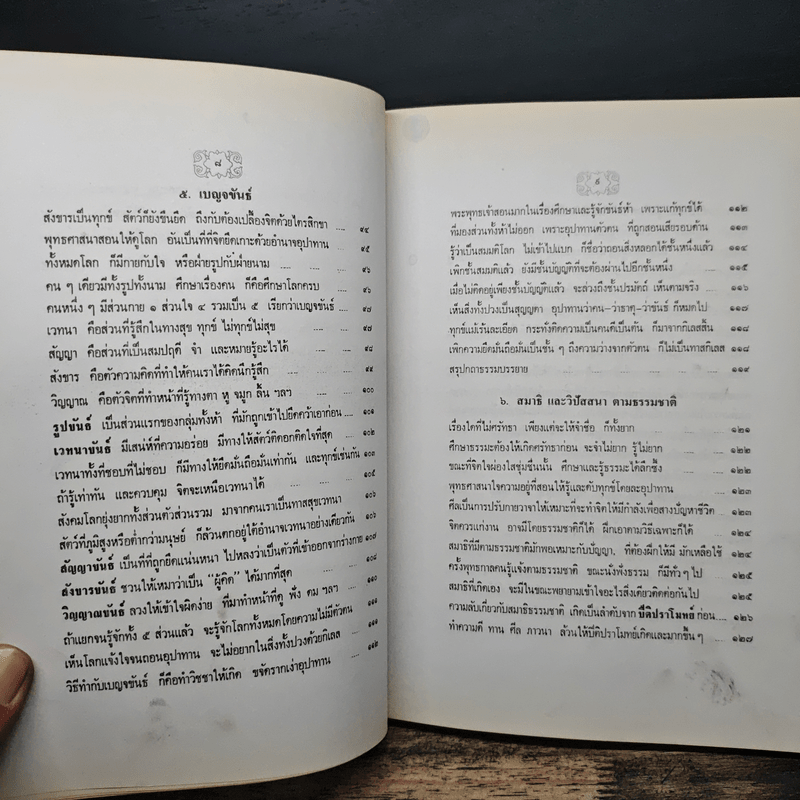 ๘
๕. เบญจขันธ์
สังขารเป็นทุกข์ สัตว์ก็ยังขืนยึด ถึงกับต้องเปลื้องจิตด้วยไตรสิกขา .... ๙๔
พุทธศาสนาสอนให้ดูโลก อันเป็นที่ที่จิตยึดเกาะด้วยอำนาจอุปาทาน .... ๙๕
ทั้งหมดโลก ก็มีกายกับใจ หรือฝ่ายรูปกับฝ่ายนาม .... .... ๙๖
คน ๆ เดียวมีทั้งรูปทั้งนาม ศึกษาเรื่องคน ก็คือศึกษาโลกครบ .... ๙๖
คนหนึ่ง ๆ มีส่วนกาย ๑ ส่วนใจ ๔ รวมเป็น ๕ เรียกว่าเบญจขันธ์ .... ๙๗
เวทนา คือส่วนที่รู้สึกในทางสุข ทุกข์ ไม่ทุกข์ไม่สุข .... .... ๙๗
สัญญา คือส่วนที่เป็นสมปฤดี จำ และหมายรู้อะไรได้ .... .... ๙๘
สังขาร คือตัวความคิดที่ทำให้คนเราได้คิดนึกรู้สึก .... .... ๙๙
วิญญาณ คือตัวจิตที่ทำหน้าที่รู้ทางตา หู จมูก ลิ้น ฯลฯ .... .... ๑๐๐
รูปขันธ์ เป็นส่วนแรกของกลุ่มทั้งห้า ที่มักถูกเข้าไปยึดคว้าเอาก่อน .... ๑๐๑
เวทนาขันธ์ มีเสน่ห์ที่ความอร่อย มีทางให้สัตว์ติดอกติดใจที่สุด .... ๑๐๒
เวทนาทั้งที่ชอบที่ไม่ชอบ ก็มีทางให้ยึดมั่นถือมั่นเท่ากัน และทุกข์เช่นกัน ๑๐๓
ถ้ารู้เท่าทัน และควบคุม จิตจะเหนือเวทนาได้ .... .... ๑๐๕
สังคมโลกยุ่งยากทั้งส่วนตัวส่วนรวม มาจากคนเราเป็นทาสสุขเวทนา .... ๑๐๖
สัตว์ที่ภูมิสูงหรือต่ำกว่ามนุษย์ ก็ล้วนตกอยู่ใต้อำนาจเวทนาอย่างเดียวกัน ๑๐๗
สัญญาขันธ์ เป็นที่ที่ถูกยึดแน่นหนา ไปหลงว่าเป็นตัวที่เข้าออกจากร่างกาย ๑๐๘
สังขารขันธ์ ชวนให้เหมาว่าเป็น "ผู้คิด" ได้มากที่สุด .... .... ๑๐๙
วิญญาณขันธ์ ลวงให้เข้าใจผิดง่าย ที่มาทำหน้าที่ดู ฟัง ดม ฯลฯ .... ๑๑๐
ถ้าแยกจนรู้จักทั้ง ๕ ส่วนแล้ว จะรู้จักโลกทั้งหมดโดยความไม่มีตัวตน ๑๑๑
เห็นโลกแจ้งใจจนถอนอุปาทาน จะไม่อยากในสิ่งทั้งปวงด้วยกิเลส .... ๑๑๑
วิธีทำกับเบญจขันธ์ ก็คือทำวิชชาให้เกิด ขจัดรากเง่าอุปาทาน .... ๑๑๒
๙
พระพุทธเจ้าสอนมากในเรื่องศึกษาและรู้จักขันธ์ห้า เพราะแก้ทุกข์ได้ ๑๑๒
ที่มองส่วนทั้งห้าไม่ออก เพราะอุปาทานตัวตน ที่ถูกสอนเสี้ยมรอบด้าน ๑๑๓
รู้ว่าเป็นสมมติโลก ไม่เข้าไปแบก ก็ชื่อว่าถอนสิ่งหลอกได้ชั้นหนึ่งแล้ว ๑๑๔
เพิกชั้นสมมติแล้ว ยังมีชั้นบัญญัติที่จะต้องผ่านไปอีกชั้นหนึ่ง .... ๑๑๕
เมื่อไม่ติดอยู่เพียงชั้นบัญญัติแล้ว จะล่วงถึงชั้นปรมัตถ์ เห็นตามจริง ๑๑๖
เห็นสิ่งทั้งปวงเป็นสุญญตา อุปาทานว่าคน-ว่าธาตุ-ว่าขันธ์ ก็หมดไป ๑๑๗
ทุกข์แม้เร้นละเอียด กระทั่งติดความเป็นคนดีเป็นต้น ก็มาจากกิเลสสิ้น ๑๑๘
เพิกความยึดมั่นถือมั่นเป็นชั้น ๆ ถึงความว่างจากตัวตน ก็ไม่เป็นทาสกิเลส ๑๑๘
สรุปกถาธรรมบรรยาย .... .... .... ๑๑๙
๖. สมาธิ และวิปัสสนา ตามธรรมชาติ
เรื่องใดที่ไม่ศรัทธา เพียงแต่จะให้จำชื่อ ก็ทั้งยาก .... .... ๑๒๑
ศึกษาธรรมะต้องให้เกิดศรัทธาก่อน จะจำไม่ยาก รู้ไม่ยาก .... ๑๒๒
ขณะที่จิตผ่องใสชุ่มชื่นนั้น ศึกษาและรู้ธรรมะได้ลึกซึ้ง .... ๑๒๒
พุทธศาสนาใจความอยู่ที่สอนให้รู้และดับทุกข์โดยละอุปาทาน .... ๑๒๓
ศีลเป็นการปรับกายวาจาให้เหมาะที่จะทำจิตให้มีกำลังเพื่อสางปัญหาชีวิต ๑๒๓
จิตควรแก่งาน อาจมีโดยธรรมชาติก็ได้ ฝึกเอาตามวิธีเฉพาะก็ได้ .... ๑๒๓
สมาธิที่มีตามธรรมชาติมักพอเหมาะกับปัญญา, ที่ต้องฝึกให้มี มักเหลือใช้ ๑๒๔
ครั้งพุทธกาลคนรู้แจ้งตามธรรมชาติ ขณะนั่งฟังธรรม ก็มีทั่ว ๆ ไป .... ๑๒๕
สมาธิที่เกิดเอง จะมีในขณะพยายามเข้าใจอะไรสิ่งเดียวติดต่อกันไป .... ๑๒๕
ความลับเกี่ยวกับสมาธิธรรมชาติ เกิดเป็นลำดับจาก ปีติปราโมทย์ ก่อน .... ๑๒๖
ทำความดี ทาน ศีล ภาวนา ล้วนให้ปีติปราโมทย์เกิดและมากขึ้น ๆ .... ๑๒๗